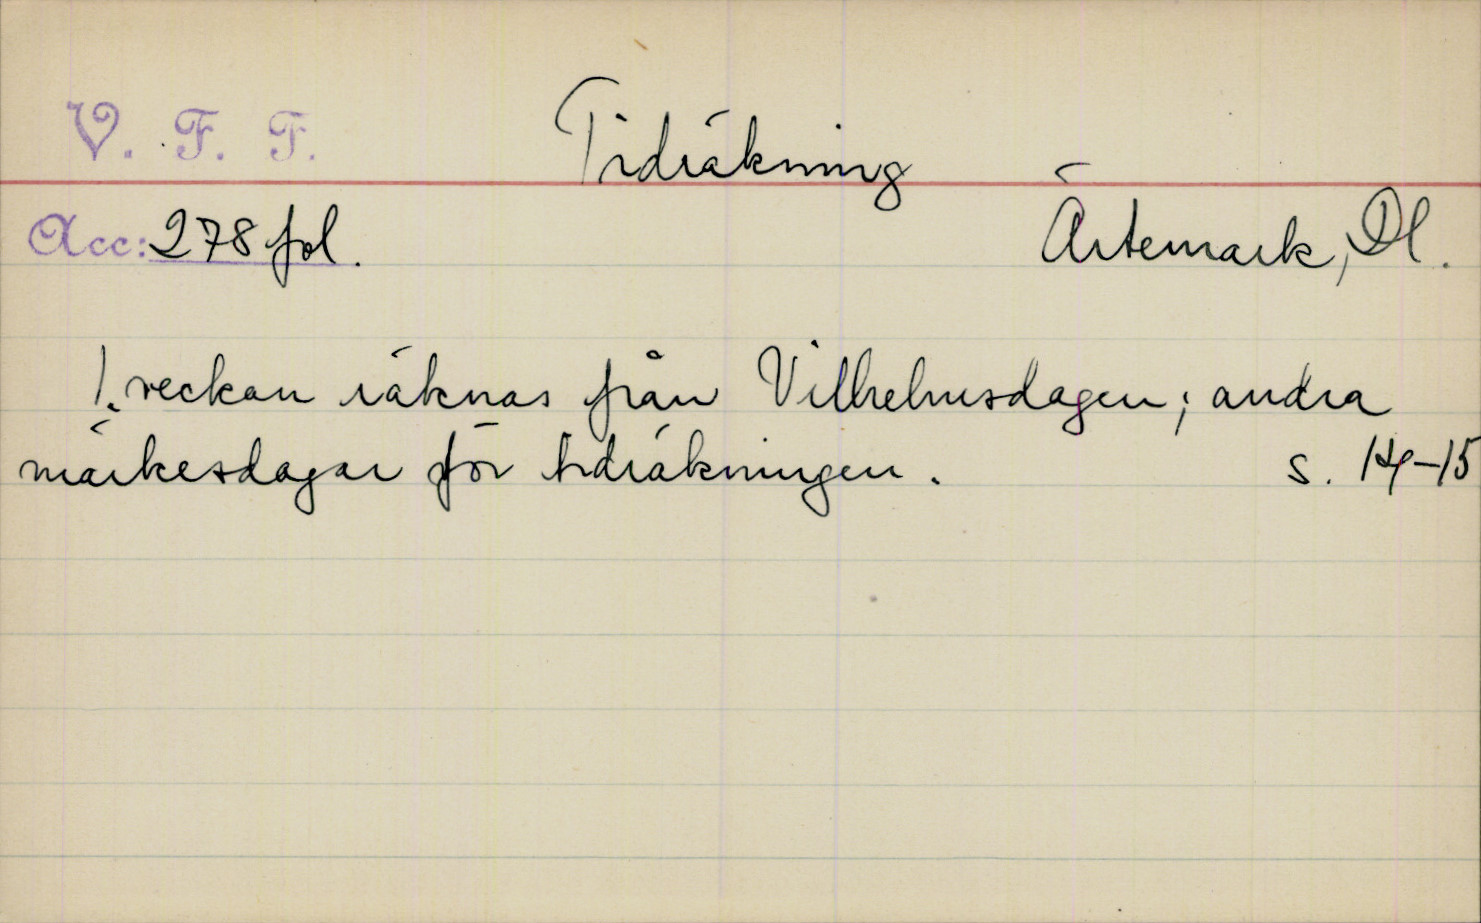 V. F. F.
Tidräkning
Acc: 278 fol.
Ärtemark, Dl.
1. veckan räknas från Vilhelmsdagen; andra
märkesdagar för tidräkningen. s. 14-15